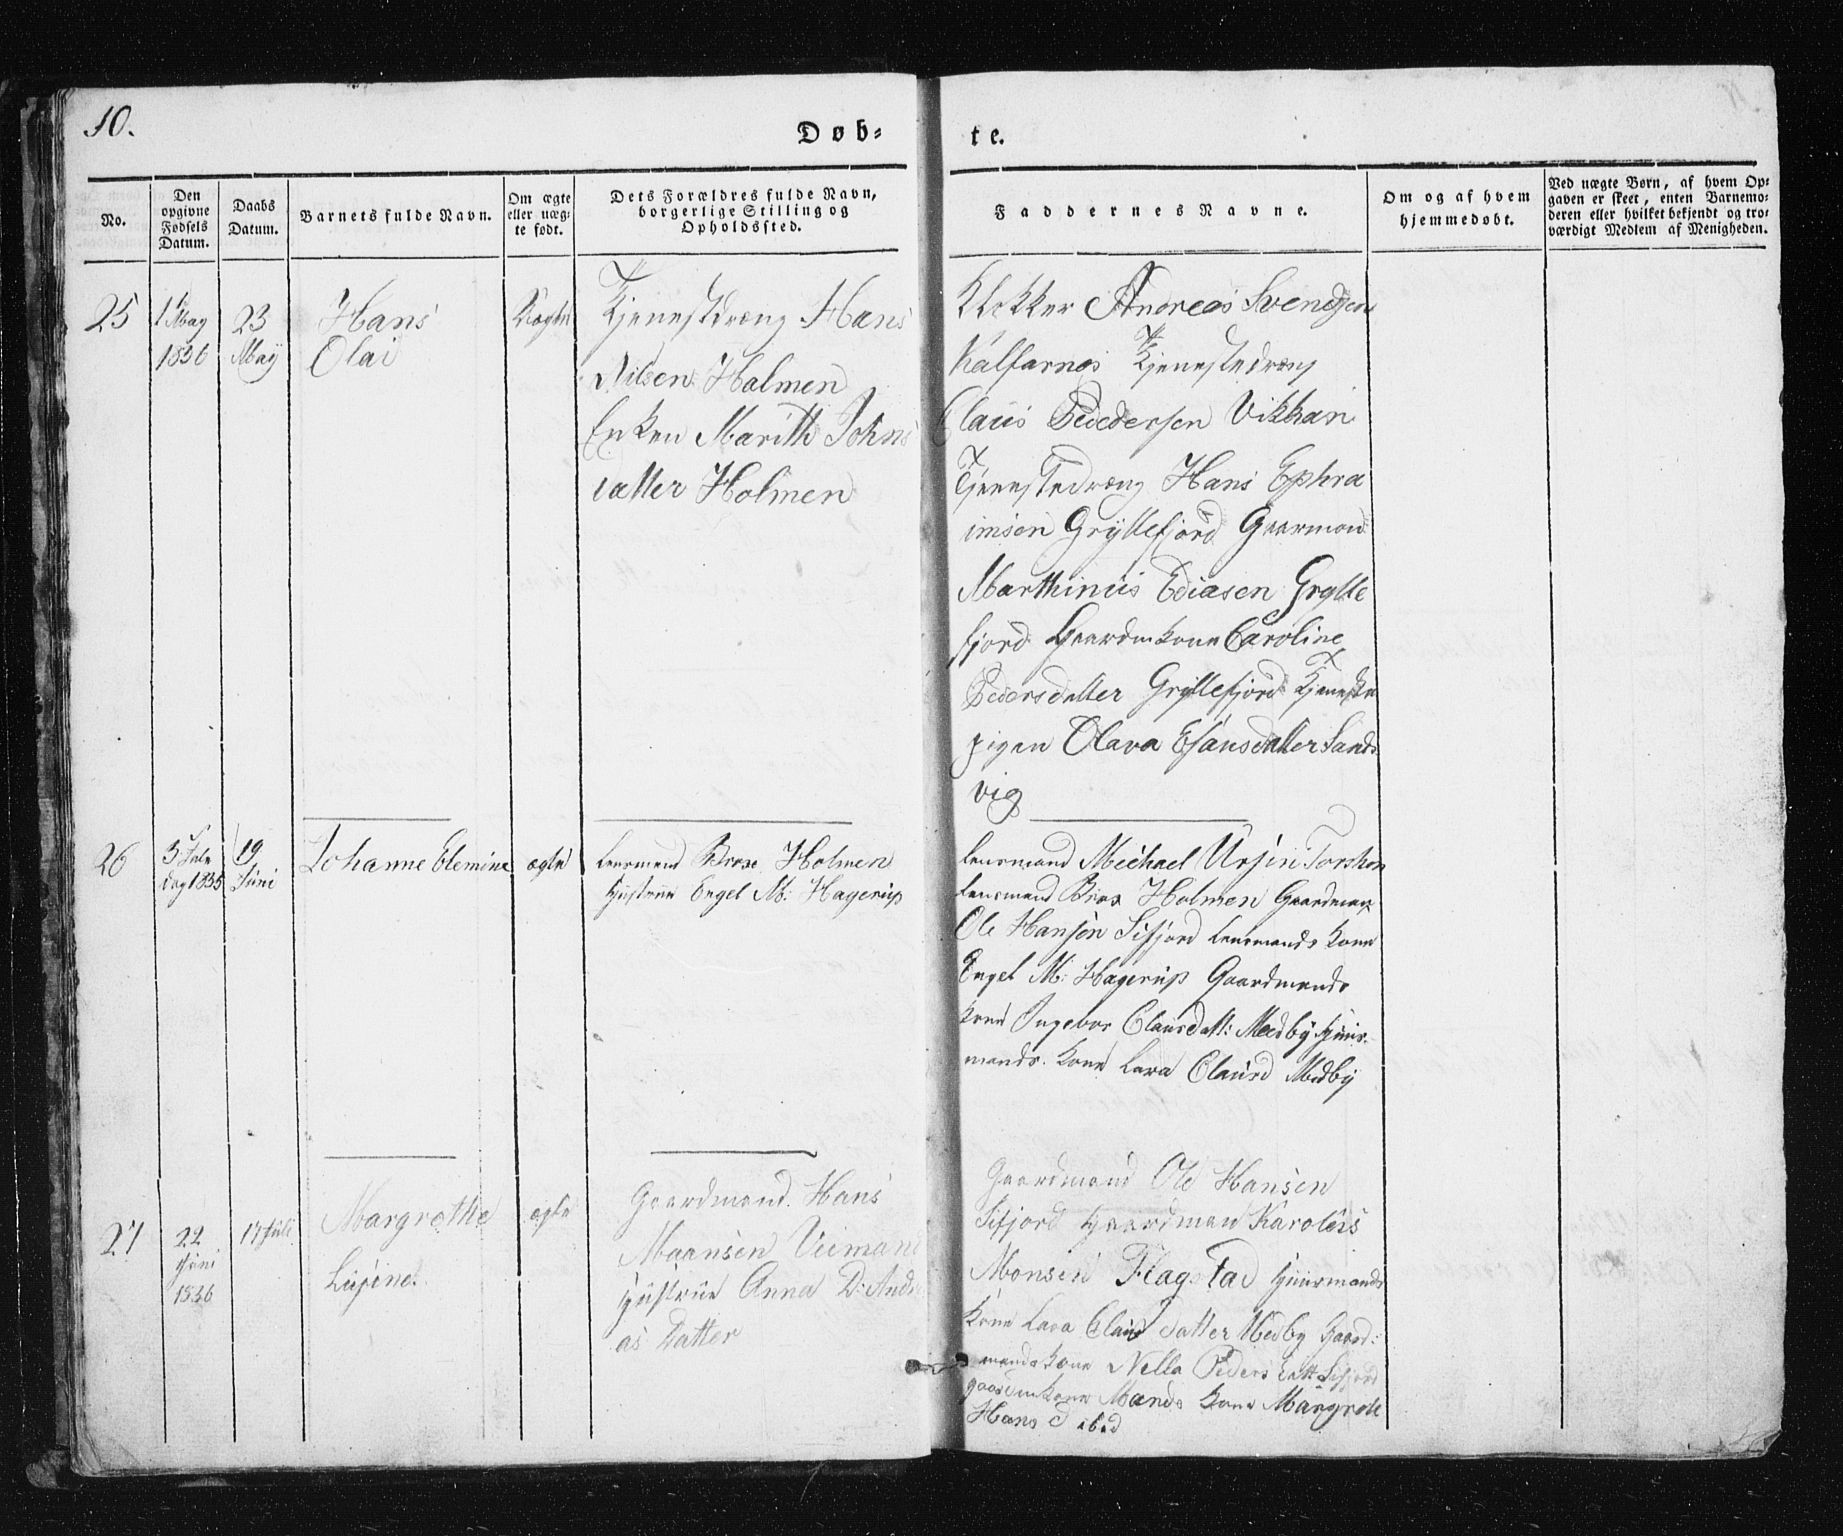 10.
Døb-
te.
No.
Den opgivne Fødsels Datum.
Daabs Datum.
Barnets fulde Navn.
Om ægte eller uægte født.
Dets Forældres fulde Navn, borgerlige Stilling og Opholdssted.
Faddernes Navne.
Om og af hvem hjemmedøbt.
Ved uægte Børn, af hvem Opgaven er skeet, enten Barnemoderen eller hvilket bekjendt og troværdigt Medlem af Menigheden.
25
1 May
1836
23
May
Hans
Olai
Uægte
Tjenestdreng Hans
Nilsen Holmen
Enken Marith Johns
datter Holmen
Klokker Andreas Svendsen
Kalfarnes Tjenestedreng
Claus Pededersen Vikhan
Tjenestedreng Hans Ephra
imsen Gryllefjord Gaarmand
Marthinus Ediasen Grylle
fjord Gaardmkone Caroline
Pedersdatter Gryllefjord Tjeneste
pigen Olava Hansdatter Sands
vig
26
3 Jule
dag 1835
19
Juni
Johanne Elemine
ægte
Lensmand Brox Holmen
Hustrue Engel M: Hagerup
Lensmand Michael Ursin Torshen
Lensmand Brox Holmen Gaardman
Ole Hansen Sifjord Lensmands Kone
Engel M: Hagerup Gaardmands
kone Ingebor Clausdatt: Medby Huus-
mands. Kone Lava Clausd Medby
27
22
Juni
1836
17 Juli
Margrethe
Lusine
ægte
Gaardmand Hans
Maansen Veimand
Hustrue Anna D: Andre
as Datter
Gaardmand Ole Hansen
Sifjord Gaardman Karolus
Monsen Flagstad Huusmands
Kone Lava Claus datter Medby Gaard:
mands kone Nella Peders datt Sifjord
gaardmkone Mands Kone Margrete
Hans d ibid